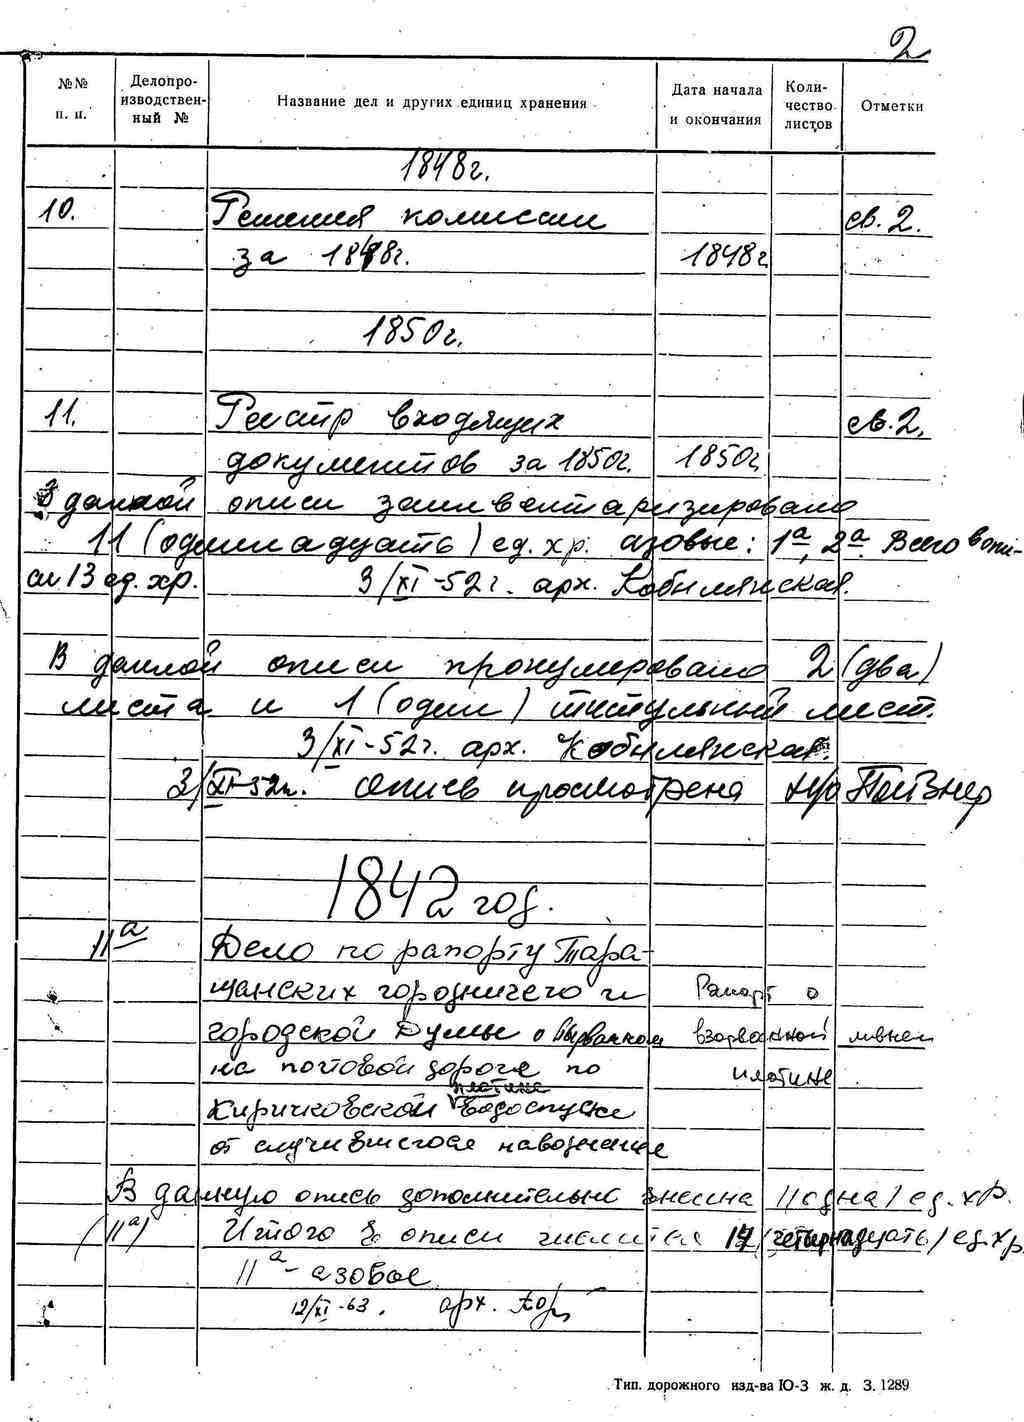 2
№№ п. п.
Делопро-
изводствен-
ный №
Название дел и других единиц хранения
Дата начала
и окончания
Коли-
чество
листов
Отметки
1848г.
10. Решения комиссии св. 2.
за 1848г. 1848г.
1850г.
11. Реестр входящих св. 2.
документов за 1850г. 1850г.
В данной описи заинвентаризировано
11 (одиннадцать) ед. хр. азовые: 1а, 2а Всего в опи-
си 13 ед. хр. 3/XI-52г. арх. Кобылянская.
В данной описи пронумеровано 2 (два)
листа и 1 (один) титульный лист.
3/XI-52г. арх. Кобылянская.
3/XI-52г. Опись просмотрена
1842 год.
11а Дело по рапорту Тара-
щанских городничего и Рапорт о
городской Думы о взорванной ливнем
на почтовой дороге по плотине
плотине
Киричковской водоспуске
от случившегося наводнения
В данную опись дополнительно внесена 1/одна/ ед. хр.
/11а/ Итого в описи числится 14 /четырнадцать/ ед. хр.
11а - азовое
12/XI-63. арх.
Тип. дорожного изд-ва Ю-З ж. д. З. 1289